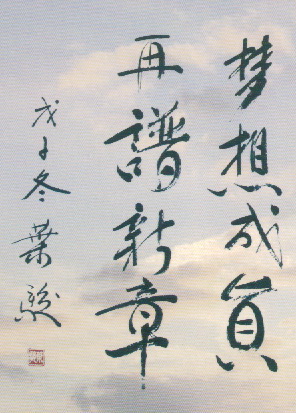 梦想成真
再谱新章
戊子冬 葉駿